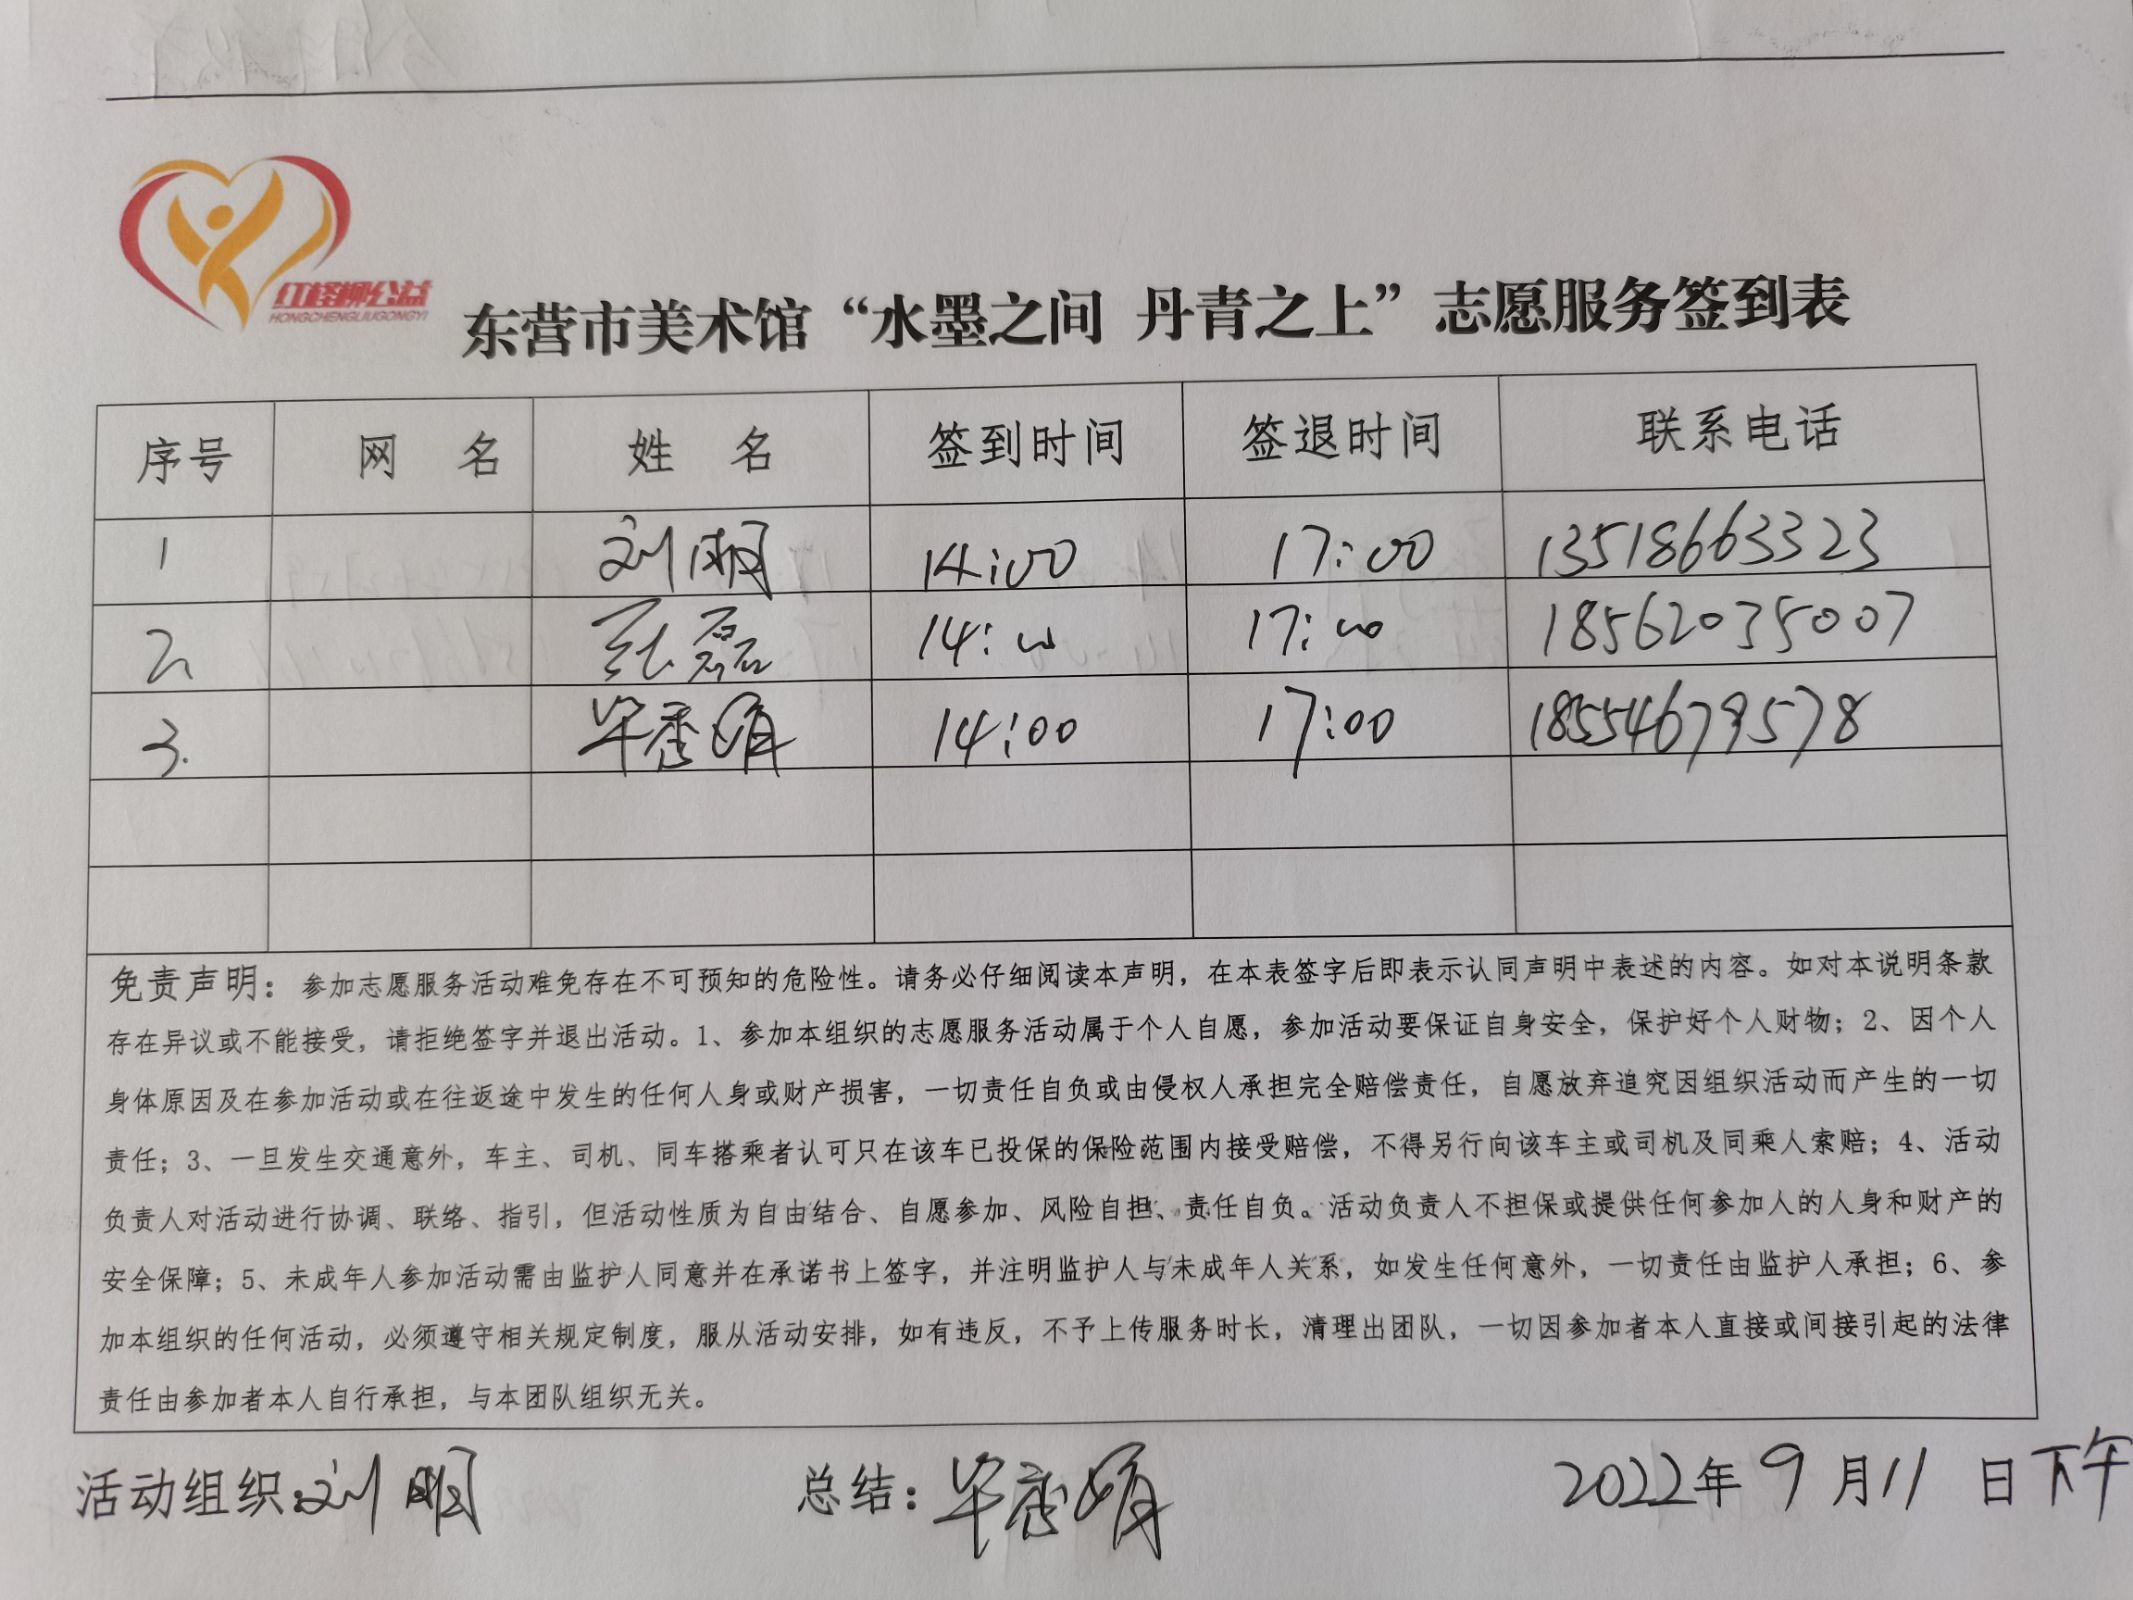 红柽柳公益
HONGCHENGLIUGONGYI
东营市美术馆“水墨之间 丹青之上”志愿服务签到表
序号 网 名 姓 名 签到时间 签退时间 联系电话
1 刘明 14:00 17:00 13518663323
2 张磊 14:00 17:00 18562035007
3. 毕秀娟 14:00 17:00 18554679578
免责声明：参加志愿服务活动难免存在不可预知的危险性。请务必仔细阅读本声明，在本表签字后即表示认同声明中表述的内容。如对本说明条款
存在异议或不能接受，请拒绝签字并退出活动。1、参加本组织的志愿服务活动属于个人自愿，参加活动要保证自身安全，保护好个人财物；2、因个人
身体原因及在参加活动或在往返途中发生的任何人身或财产损害，一切责任自负或由侵权人承担完全赔偿责任，自愿放弃追究因组织活动而产生的一切
责任；3、一旦发生交通意外，车主、司机、同车搭乘者认可只在该车已投保的保险范围内接受赔偿，不得另行向该车主或司机及同乘人索赔；4、活动
负责人对活动进行协调、联络、指引，但活动性质为自由结合、自愿参加、风险自担、责任自负。活动负责人不担保或提供任何参加人的人身和财产的
安全保障；5、未成年人参加活动需由监护人同意并在承诺书上签字，并注明监护人与未成年人关系，如发生任何意外，一切责任由监护人承担；6、参
加本组织的任何活动，必须遵守相关规定制度，服从活动安排，如有违反，不予上传服务时长，清理出团队，一切因参加者本人直接或间接引起的法律
责任由参加者本人自行承担，与本团队组织无关。
活动组织：刘明 总结：毕秀娟 2022年9月11日下午